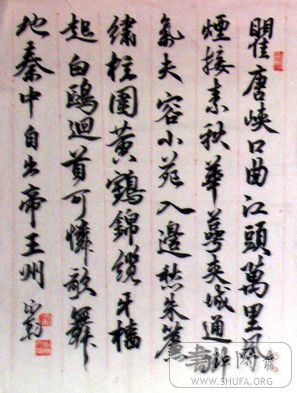 瞿唐峽口曲江頭萬里風
煙接素秋華萼夾城通御
氣夫容小苑入邊愁朱簾
繡柱圍黃鶴錦纜牙檣
起白鷗迴首可憐歌舞
地秦中自古帝王州
WWW.SHUFA.ORG